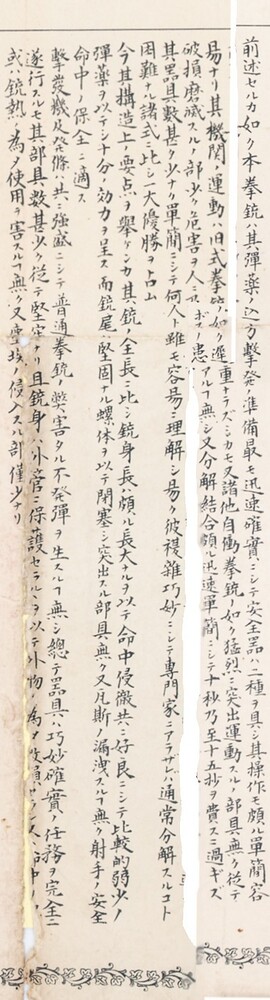 前述セルカ如ク本拳銃ハ其彈藥ノ込方擊発ノ準備最モ迅速確實ニシテ安全器ハ二種ヲ具シ其操作モ頗ル單簡容
易ナリ其機関ノ運動ハ旧式拳銃ノ如ク遲重ナラズシカモ又諸他自働拳銃ノ如ク猛烈ニ突出運動スルノ部具無ク従テ
破損磨滅スルノ部少ク危害ヲ人ニ及ボスノ患アルヿ無シ又分解結合頗ル迅速單簡ニシテ十秒乃至十五抄ヲ費スニ過ギズ
其器具數甚ク少ナク單簡ニシテ何人ト雖モ容易ニ理解シ易ク彼複雜巧妙ニシテ專門家ニアラザレバ通常分解スルコト
困難ナル諸式ニ比シ一大優勝ヲ占ム
今其構造上ノ要点ヲ舉ケンカ其銃ノ全長ニ比シ銃身長ハ頗ル長大ナルヲ以テ命中侵徹共ニ好良ニシテ比較的弱少ノ
彈藥ヲ以テシ十分ノ効力ヲ呈ス而銃尾ハ堅固ナル螺体ヲ以テ閉塞シ突出スル部具無ク又瓦斯ノ漏洩スルヿ無ク射手ノ安全
命中ノ保全ニ適ス
擊發機及発條ハ共ニ強盛ニシテ普通拳銃ノ弊害タル不発彈ヲ生スルヿ無シ總テ器具ハ巧妙確實ノ任務ヲ完全ニ
遂行スルモ其部具數甚少ク従テ堅牢ナリ且銃身ハ外管ニ保護セラルヽヲ以テ外物ノ為メ破損
或ハ銃熱ノ為メ使用ヲ害スルヿ無ク又塵埃ノ侵入スル部僅少ナリ